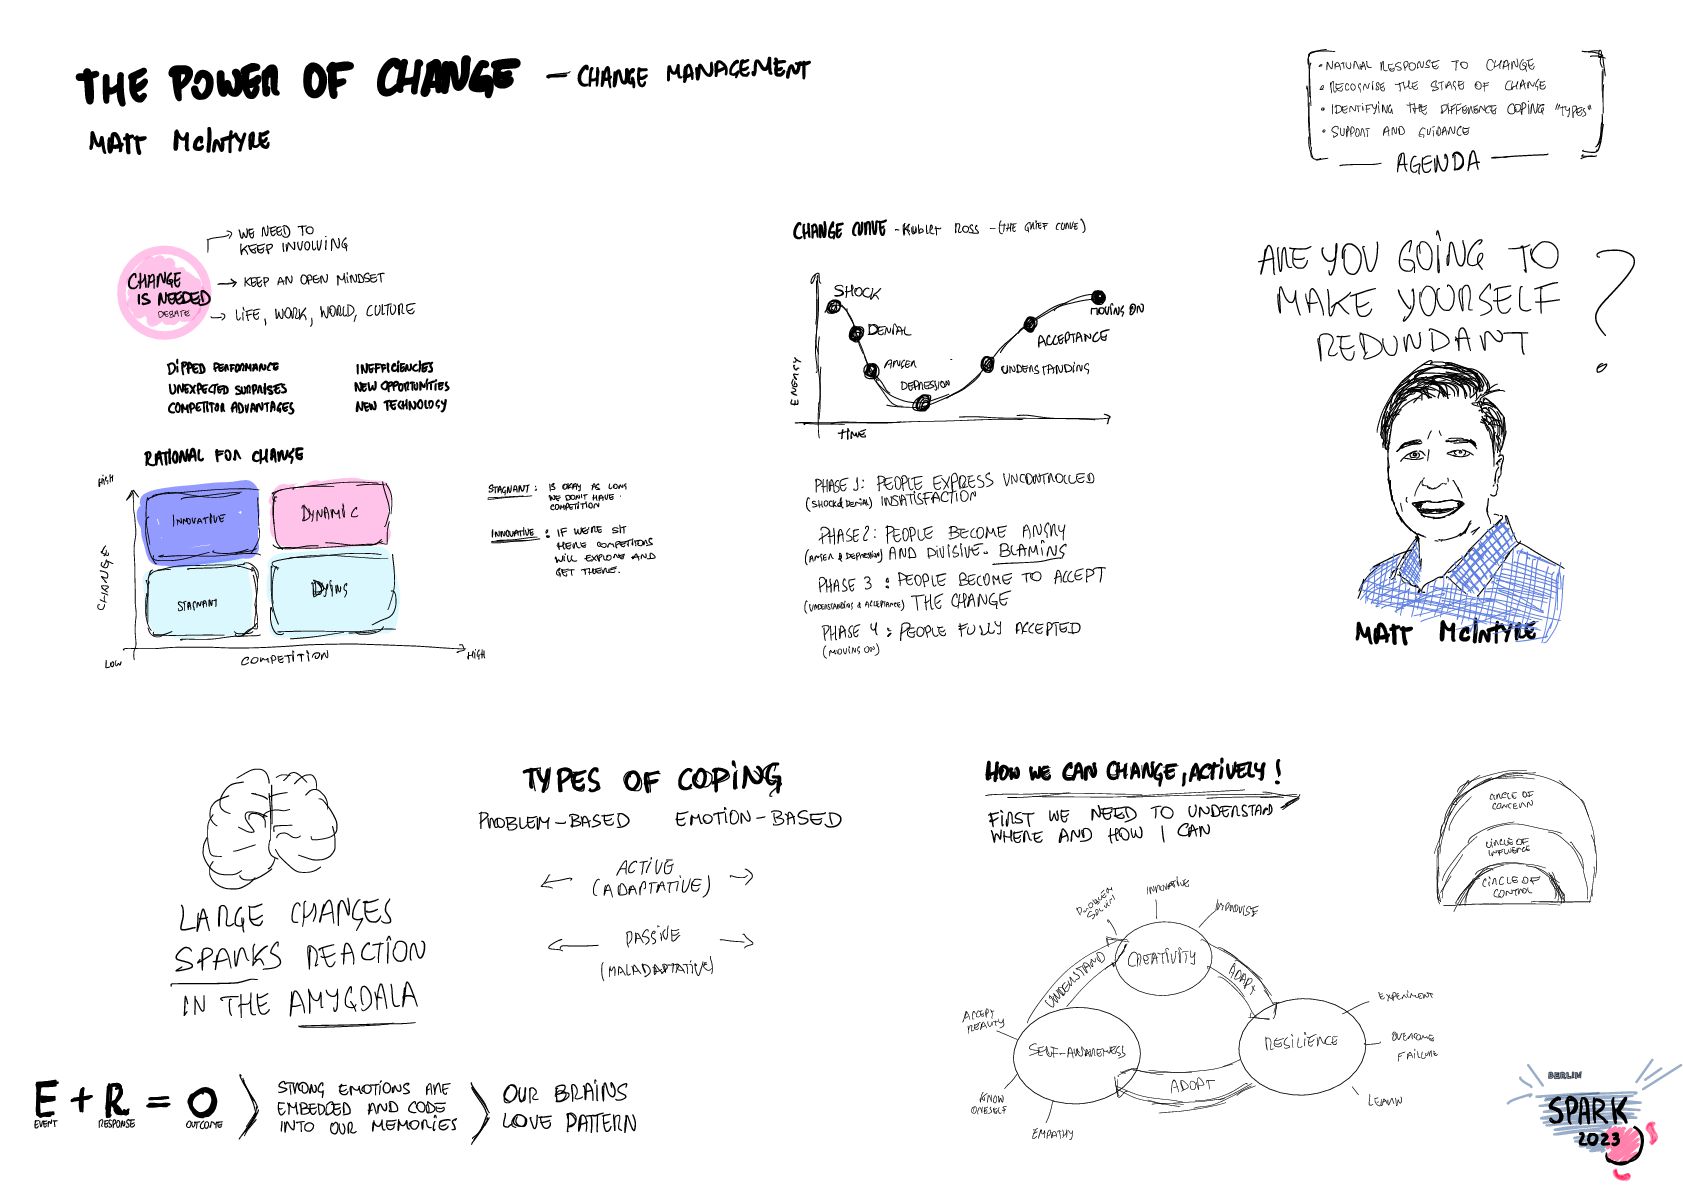 THE POWER OF CHANGE – CHANGE MANAGEMENT
MATT McINTYRE
• NATURAL RESPONSE TO CHANGE
• RECOGNISE THE STAGE OF CHANGE
• IDENTIFYING THE DIFFERENCE COPING "TYPES"
• SUPPORT AND GUIDANCE
AGENDA
CHANGE
IS NEEDED
DEBATE
WE NEED TO
KEEP INVOLVING
KEEP AN OPEN MINDSET
LIFE, WORK, WORLD, CULTURE
DIPPED PERFORMANCE
UNEXPECTED SURPRISES
COMPETITOR ADVANTAGES
INEFFICIENCIES
NEW OPPORTUNITIES
NEW TECHNOLOGY
RATIONAL FOR CHANGE
HIGH
INNOVATIVE
DYNAMIC
CHANGE
STAGNANT
DYING
LOW
COMPETITION
HIGH
STAGNANT: IS OKAY AS LONG
WE DON'T HAVE
COMPETITION
INNOVATIVE: IF WE'RE SIT
HERE COMPETITORS
WILL EXPLORE AND
GET THERE.
CHANGE CURVE - KUBLER ROSS - (THE GRIEF CURVE)
SHOCK
DENIAL
ANGER
DEPRESSION
UNDERSTANDING
ACCEPTANCE
MOVING ON
ENERGY
TIME
PHASE 1: PEOPLE EXPRESS UNCONTROLLED
(SHOCK & DENIAL) INSATISFACTION
PHASE 2: PEOPLE BECOME ANGRY
(ANGER & DEPRESSION) AND DIVISIVE - BLAMING
PHASE 3: PEOPLE BECOME TO ACCEPT
(UNDERSTANDING & ACCEPTANCE) THE CHANGE
PHASE 4: PEOPLE FULLY ACCEPTED
(MOVING ON)
ARE YOU GOING TO
MAKE YOURSELF
REDUNDANT
?
MATT McINTYRE
LARGE CHANGES
SPARKS REACTION
IN THE AMYGDALA
TYPES OF COPING
PROBLEM-BASED EMOTION-BASED
ACTIVE
(ADAPTATIVE)
PASSIVE
(MALADAPTATIVE)
HOW WE CAN CHANGE, ACTIVELY!
FIRST WE NEED TO UNDERSTAND
WHERE AND HOW I CAN
CIRCLE OF
CONCERN
CIRCLE OF
INFLUENCE
CIRCLE OF
CONTROL
INNOVATIVE
IMPROVISE
CREATIVITY
UNDERSTAND
ADAPT
ACCEPT
REALITY
SELF-AWARENESS
KNOW
ONESELF
EMPATHY
ADOPT
RESILIENCE
EXPERIMENT
OVERCOME
FAILURE
LEARN
E + R = O
EVENT RESPONSE OUTCOME
STRONG EMOTIONS ARE
EMBEDDED AND CODE
INTO OUR MEMORIES
OUR BRAINS
LOVE PATTERN
BERLIN
SPARK
2023